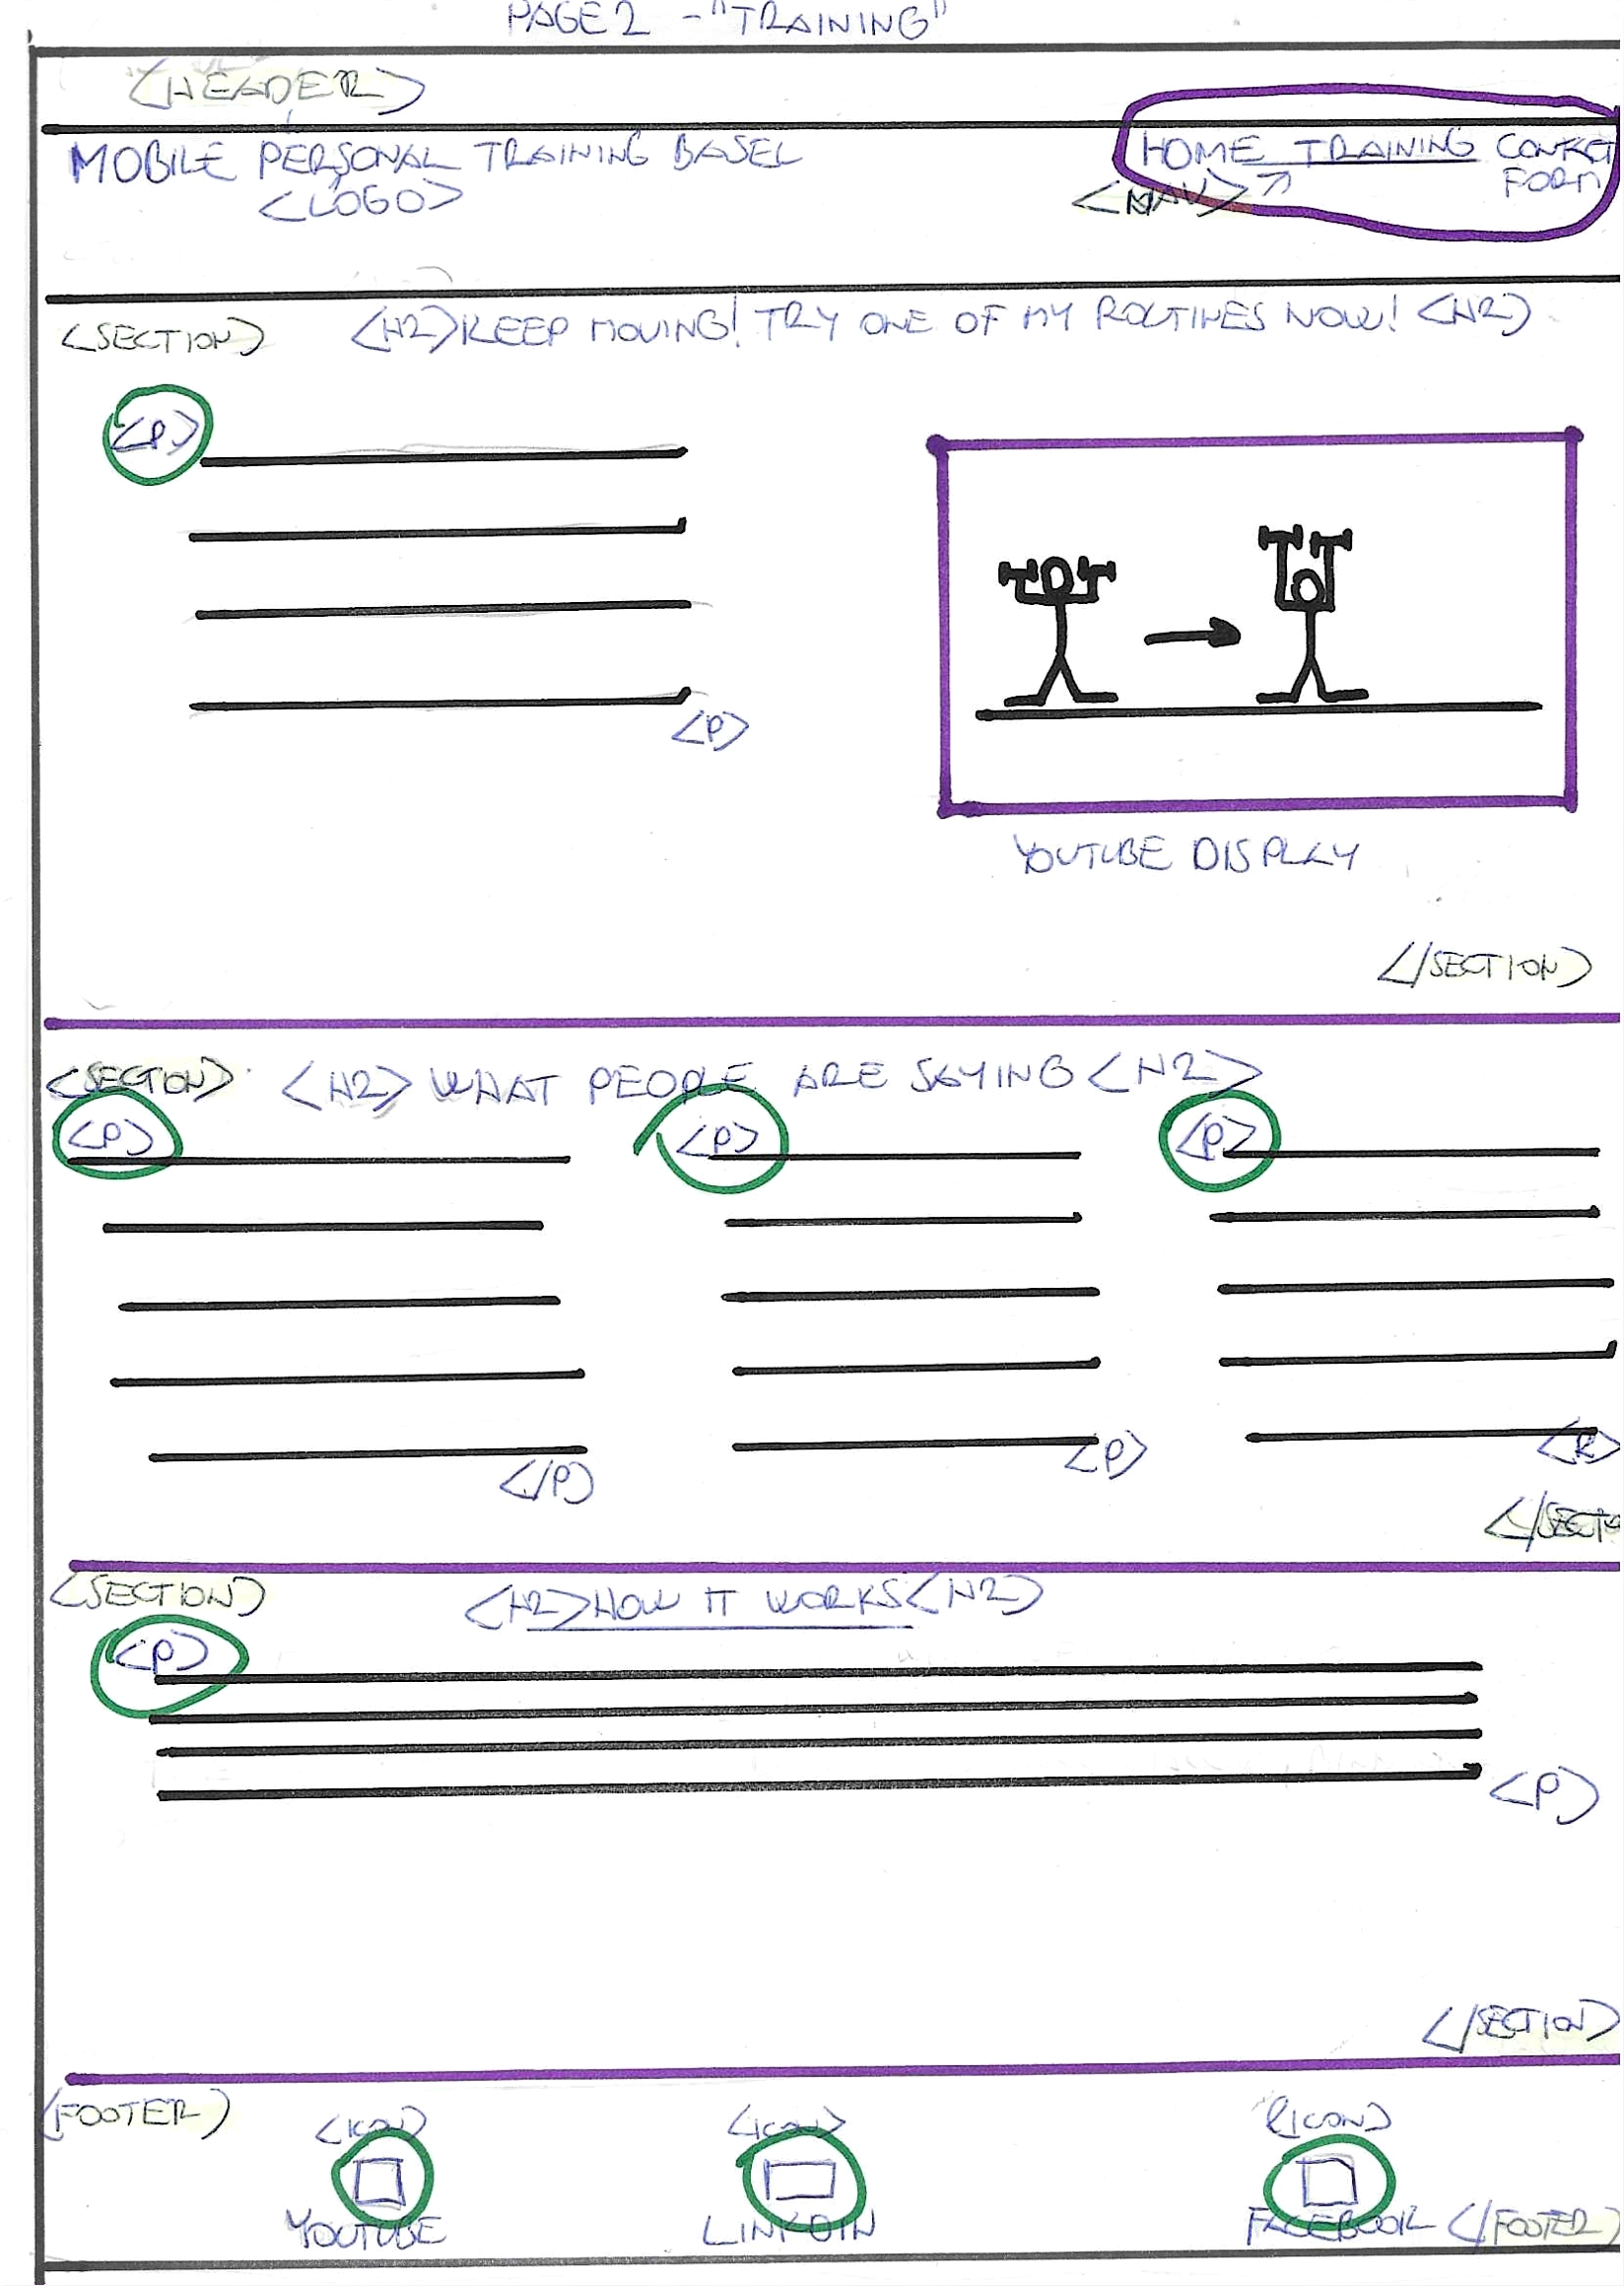 PAGE 2 - "TRAINING"
<HEADER>
MOBILE PERSONAL TRAINING BASEL
<LOGO>
HOME TRAINING CONTACT
FORM
<NAV>
<SECTION> <H2> KEEP MOVING! TRY ONE OF MY ROUTINES NOW! <H2>
<P>
<P>
YOUTUBE DISPLAY
</SECTION>
<SECTION> <H2> WHAT PEOPLE ARE SAYING <H2>
<P> <P> <P>
</P> <P>
</SECTIO
<SECTION> <H2> HOW IT WORKS <H2>
<P>
<P>
</SECTION>
<FOOTER>
<ICON> <ICON> <ICON>
YOUTUBE LINKDIN FACEBOOK </FOOTER>